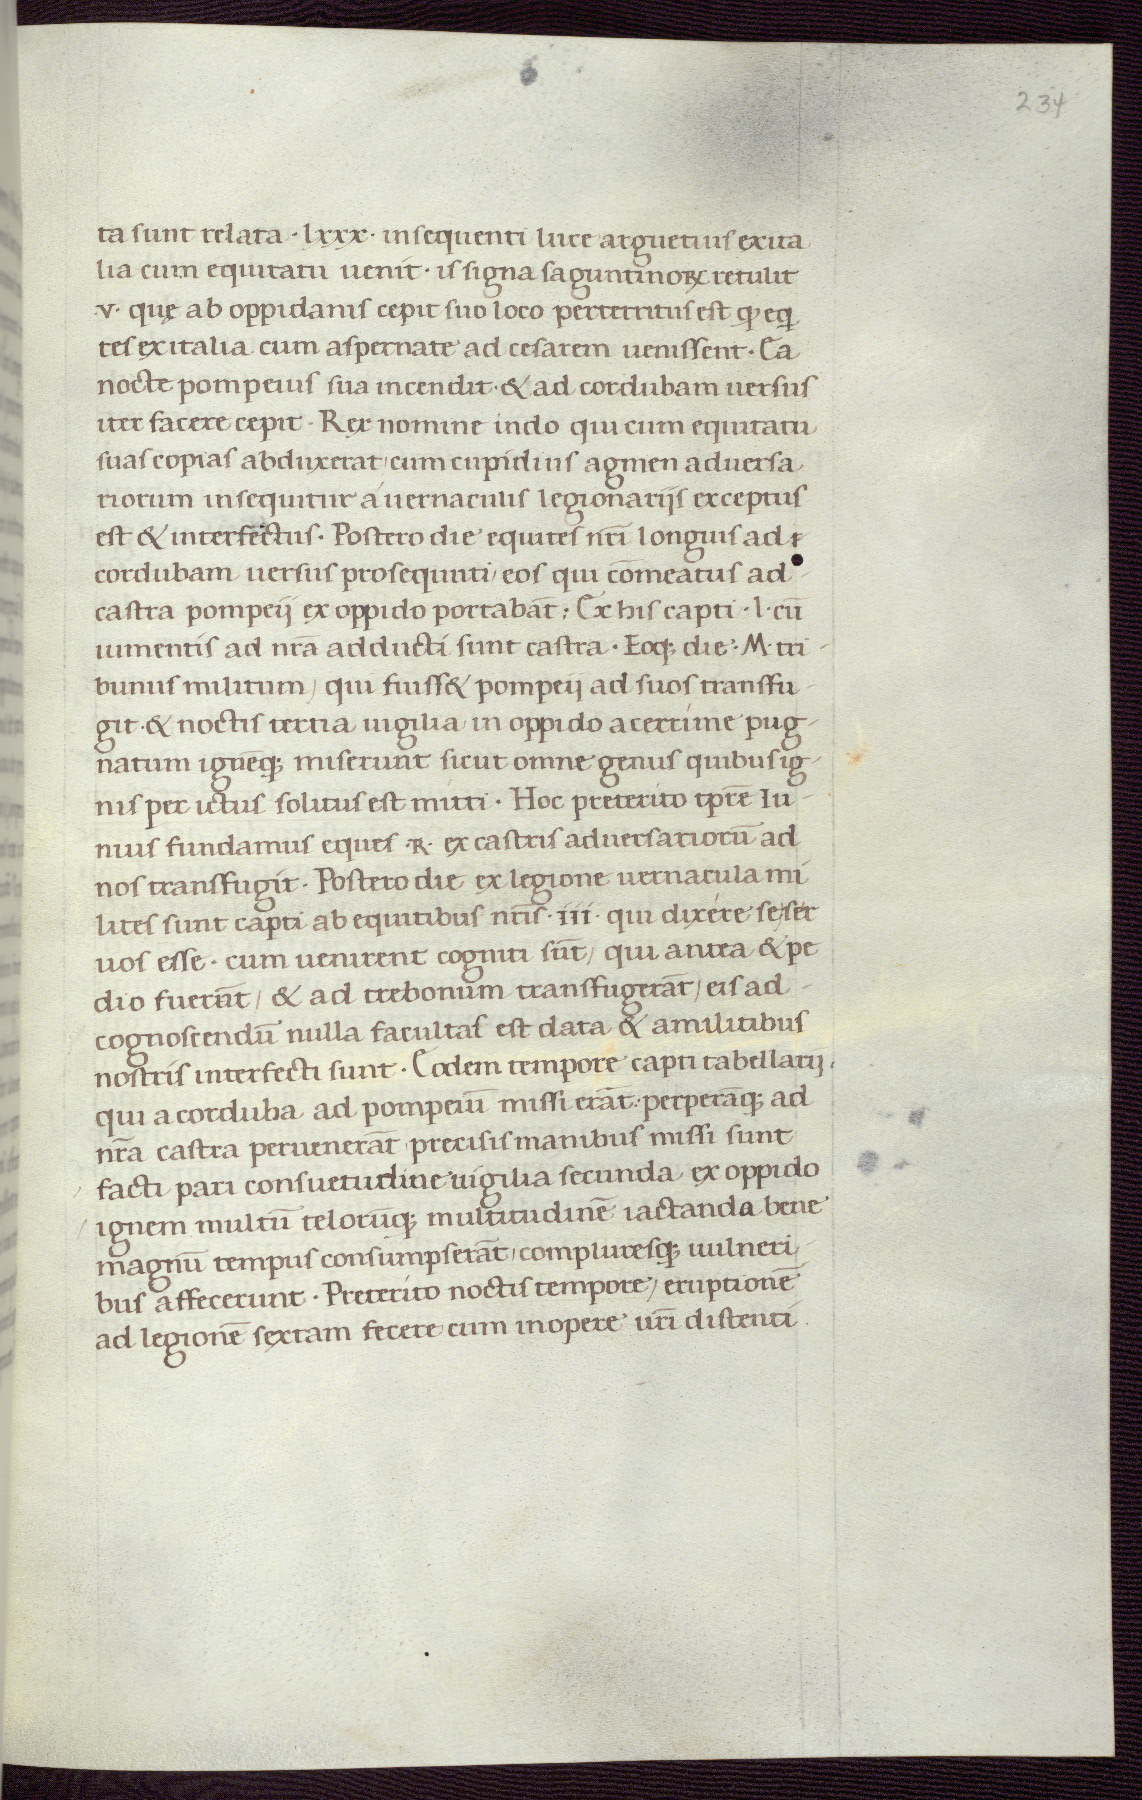 234
ta sunt relata · lxxx · insequenti luce arguetius ex ita
lia cum equitatu uenit · is signa saguntinoꝝ retulit
·v· quę ab oppidanis cepit suo loco perterritus est qͥ eqͥ
tes ex italia cum aspernate ad cesarem uenissent · Ea
nocte pompeius sua incendit · & ad cordubam uersus
iter facere cepit · Rex nomine indo qui cum equitatu
suas copias abduxerat / cum cupidius agmen aduersa
riorum insequitur a uernaculis legionarijs exceptus
est & interfectus · Postero die equites nr̄i longius ad
cordubam uersus prosequnti / eos qui cōmeatus ad -
castra pompeij ex oppido portabāt ; Ex his capti · l · cū
iumentis ad nr̄a adducti sunt castra · Eoqꝫ die · M · tri -
bunus militum / qui fuiss& pompeij ad suos transfu -
git · & noctis tertia uigilia in oppido acerrime pug -
natum ignēqꝫ miserunt sicut omne genus quibus ig -
nis per ictus solitus est mitti · Hoc preterito tp̄re Iu -
nius fundamus eques · R · ex castris aduersariorū ad
nos transfugit · Postero die ex legione uernacula mi
lites sunt capti ab equitibus nr̄is · iii · qui dixere se / ser
uos esse · cum uenirent cogniti sūt / qui antea & pe
dio fuerāt / & ad trebonum transfugerāt / eis ad -
cognoscendū nulla facultas est data & a militibus
nostris interfecti sunt · Eodem tempore capti tabellarij ·
qui a corduba ad pompeiū missi erāt · perperāqꝫ ad
nr̄a castra peruenerāt precisis manibus missi sunt
facti pari consuetudine uigilia secunda ex oppido
ignem multū telorūqꝫ multitudinē iactanda bene
magnū tempus consumpserāt / compluresqꝫ uulneri -
bus affecerunt · Preterito noctis tempore / eruptionē
ad legionē sextam fecere cum in opere ur̄i distenti